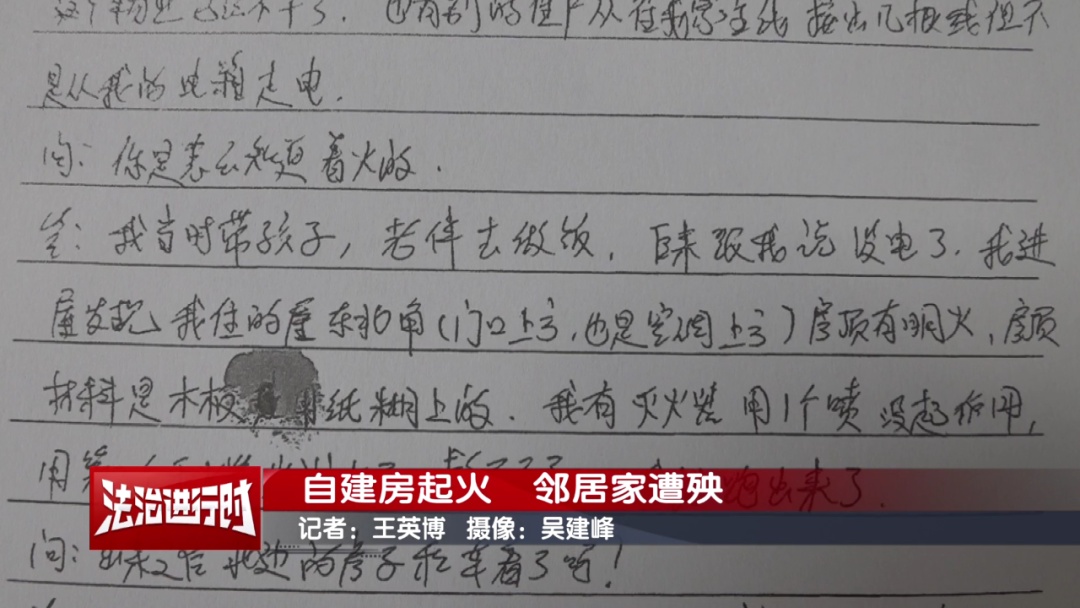 这个物业已经不干了. 也有别的住户从在我家主线接出几根线但不
是从我的电箱走电.
问: 你是怎么知道着火的.
答: 我当时带孩子, 老伴去做饭, 回来跟我说没电了. 我进
屋发现我住的屋东北角(门口上方, 也是空调上方)房顶有明火, 房顶
材料是木板 纸糊上的. 我有灭火器用1个喷没起作用,
用第 出来了.
法治进行时
自建房起火 邻居家遭殃
记者：王英博 摄像：吴建峰
问: 出来之后 边的房子和车着了吗!